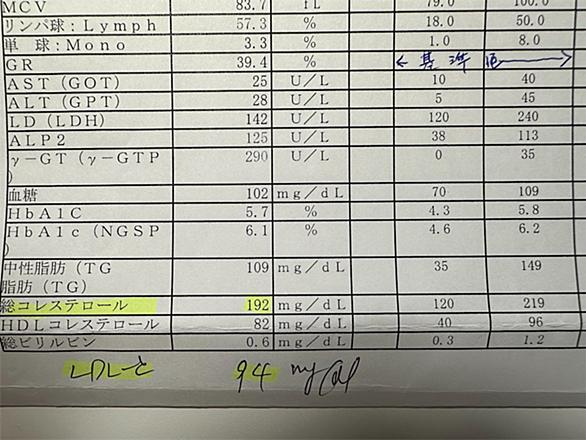 MCV 83.7 fL 79.0 100.0
リンパ球:Lymph 57.3 % 18.0 50.0
単 球:Mono 3.3 % 1.0 8.0
GR 39.4 % ← 基準値 →
AST(GOT) 25 U/L 10 40
ALT(GPT) 28 U/L 5 45
LD(LDH) 142 U/L 120 240
ALP2 125 U/L 38 113
γ-GT(γ-GTP 290 U/L 0 35
)
血糖 102 mg/dL 70 109
HbA1C 5.7 % 4.3 5.8
HbA1c(NGSP 6.1 % 4.6 6.2
)
中性脂肪(TG 109 mg/dL 35 149
脂肪(TG)
総コレステロール 192 mg/dL 120 219
HDLコレステロール 82 mg/dL 40 96
総ビリルビン 0.6 mg/dL 0.3 1.2
LDL-C 94 mg/dl